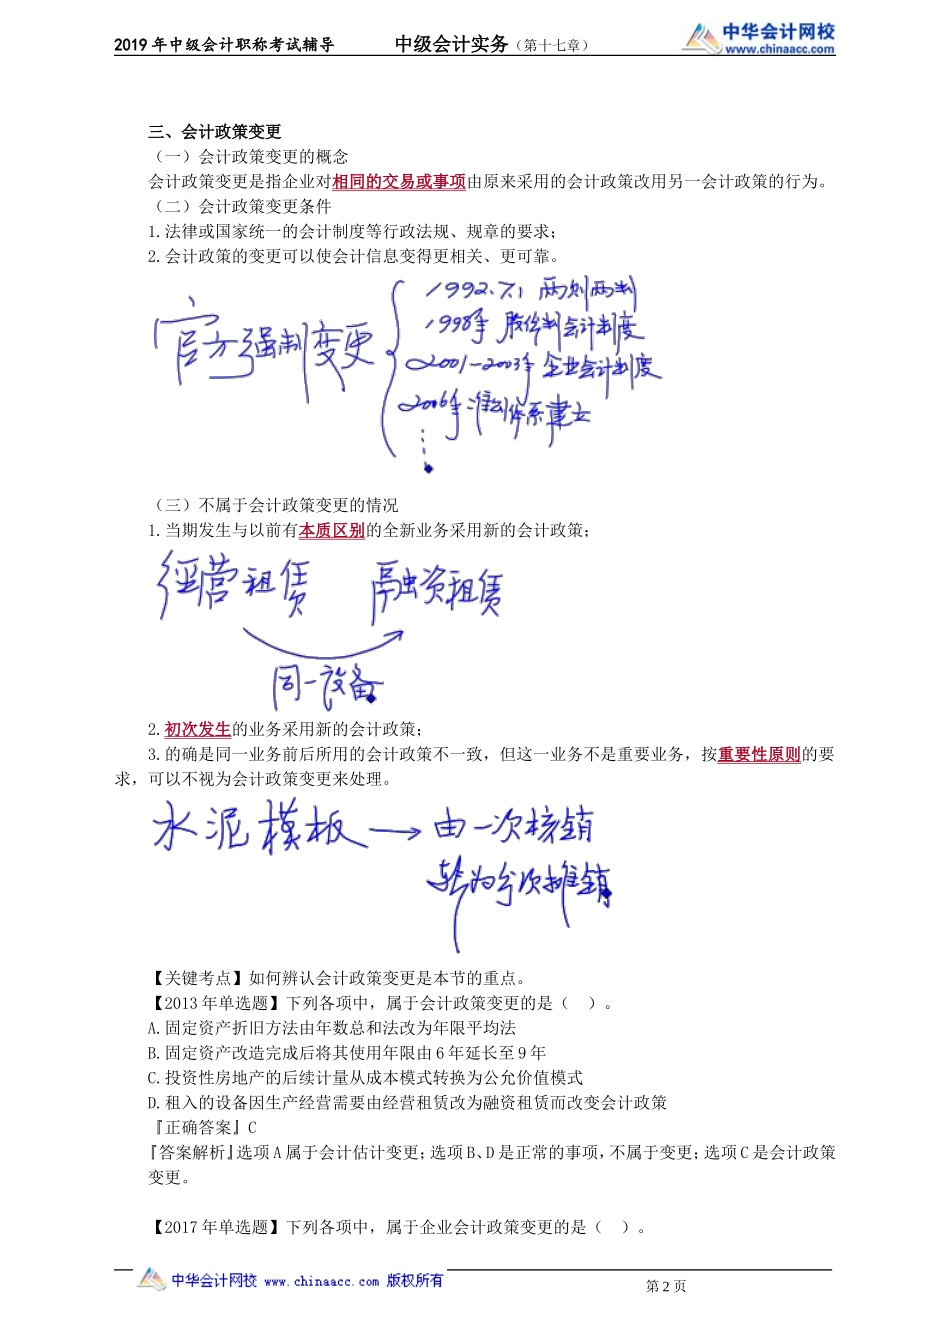 2019年中级会计职称考试辅导 中级会计实务（第十七章）
中华会计网校
www.chinaacc.com
三、会计政策变更
（一）会计政策变更的概念
会计政策变更是指企业对相同的交易或事项由原来采用的会计政策改用另一会计政策的行为。
（二）会计政策变更条件
1.法律或国家统一的会计制度等行政法规、规章的要求；
2.会计政策的变更可以使会计信息变得更相关、更可靠。
官方强制变更
1992.7.1 两则两制
1998年 股份制会计制度
2001—2003年 企业会计制度
2006年准则体系建立
（三）不属于会计政策变更的情况
1.当期发生与以前有本质区别的全新业务采用新的会计政策；
经营租赁 融资租赁
同一设备
2.初次发生的业务采用新的会计政策；
3.的确是同一业务前后所用的会计政策不一致，但这一业务不是重要业务，按重要性原则的要
求，可以不视为会计政策变更来处理。
水泥模板→由一次核销
转为分次摊销
【关键考点】如何辨认会计政策变更是本节的重点。
【2013年单选题】下列各项中，属于会计政策变更的是（ ）。
A.固定资产折旧方法由年数总和法改为年限平均法
B.固定资产改造完成后将其使用年限由6年延长至9年
C.投资性房地产的后续计量从成本模式转换为公允价值模式
D.租入的设备因生产经营需要由经营租赁改为融资租赁而改变会计政策
『正确答案』C
『答案解析』选项A属于会计估计变更；选项B、D是正常的事项，不属于变更；选项C是会计政策
变更。
【2017年单选题】下列各项中，属于企业会计政策变更的是（ ）。
中华会计网校 www.chinaacc.com 版权所有
第2页